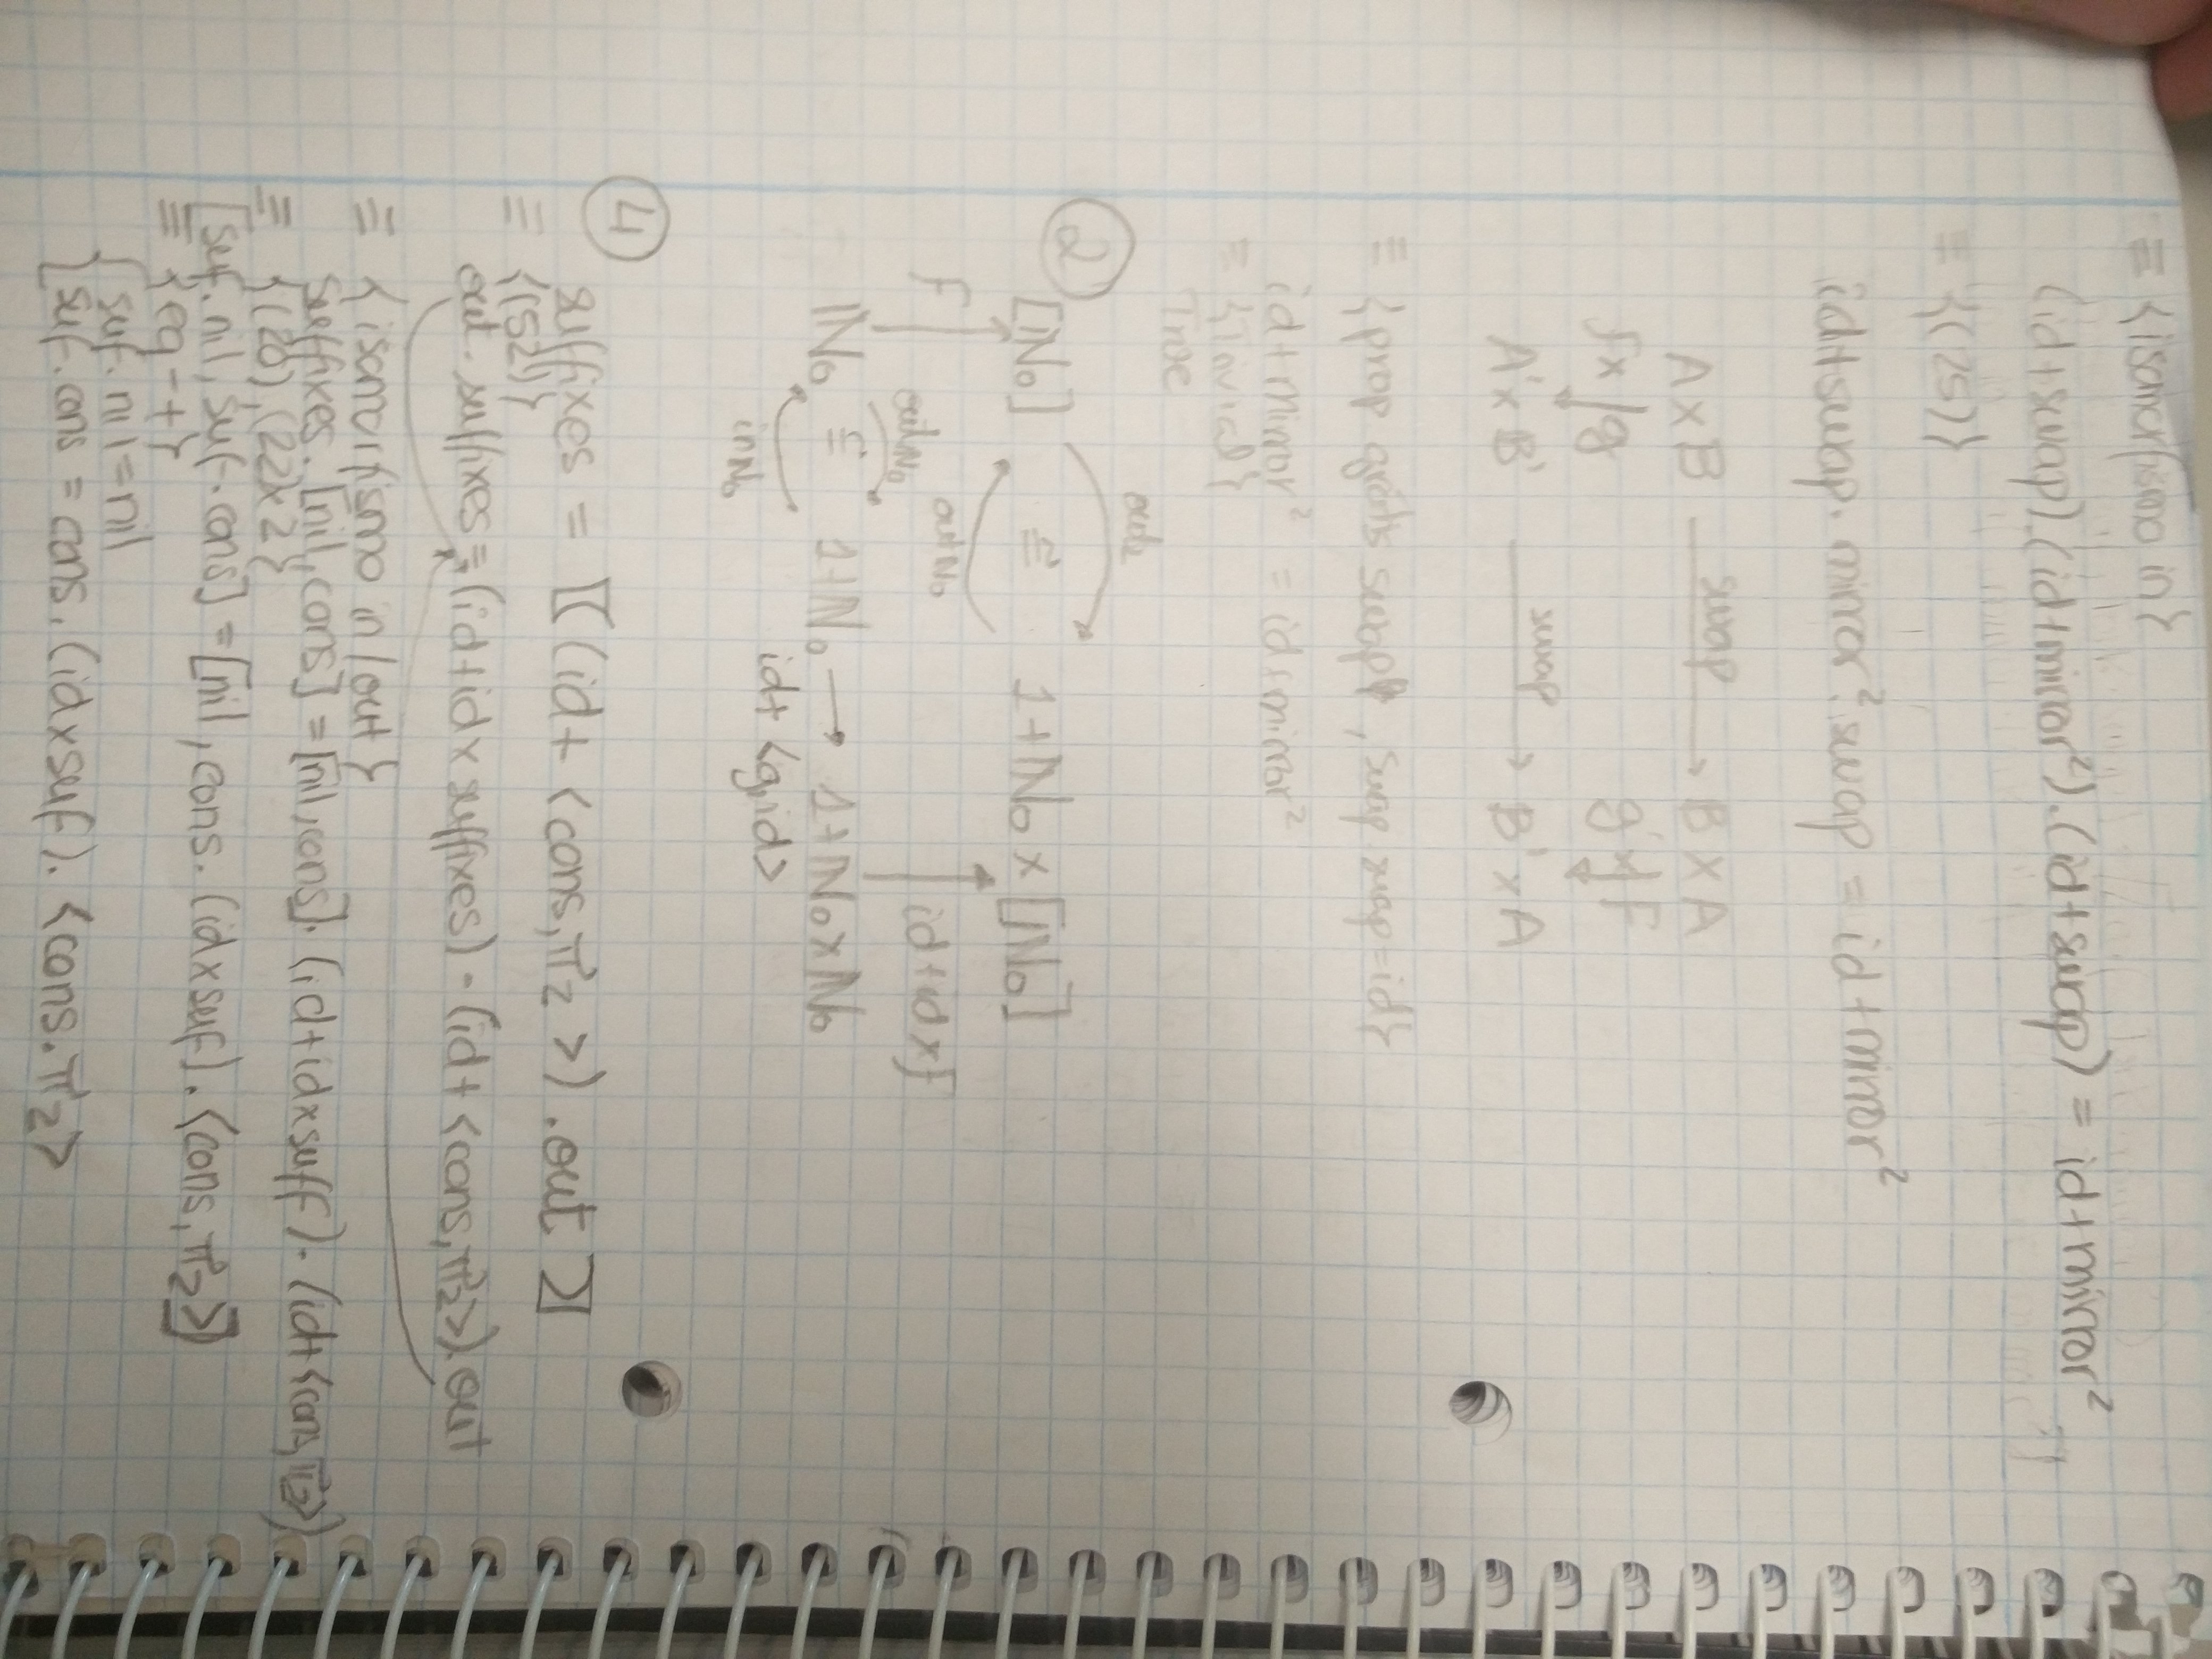 ≡ {isomorfismo in}
(id+swap).(id+mirror²).(id+swap) = id+mirror²
≡ {(25)}
id+swap. mirror². swap = id+mirror²
A×B swap B×A
f× g g× f
A'×B' swap B'×A
≡ {prop grátis swap, swap swap=id}
id+mirror² = id+mirror²
≡ {Trivial}
True
② out
[ℕ₀] ≅ 1+ℕ₀×[ℕ₀]
outℕ₀
f id+id×f
outℕ₀
ℕ₀ ≅ 1+ℕ₀ → 1+ℕ₀×ℕ₀
id+<g,id>
inℕ₀
④
suffixes = 〖(id+<cons,π₂>).out〗
≡ {(52)}
out. suffixes = (id+id×suffixes).(id+<cons,π₂>).out
≡ {isomorfismo in/out}
suffixes.[nil,cons] = [nil,cons].(id+id×suff).(id+<cons,π₂>)
≡ {(20),(22)×2}
[suf.nil, suf.cons] = [nil, cons.(id×suf).<cons,π₂>]
≡ {eq-+}
{ suf.nil=nil
suf.cons = cons.(id×suf).<cons.π₂>